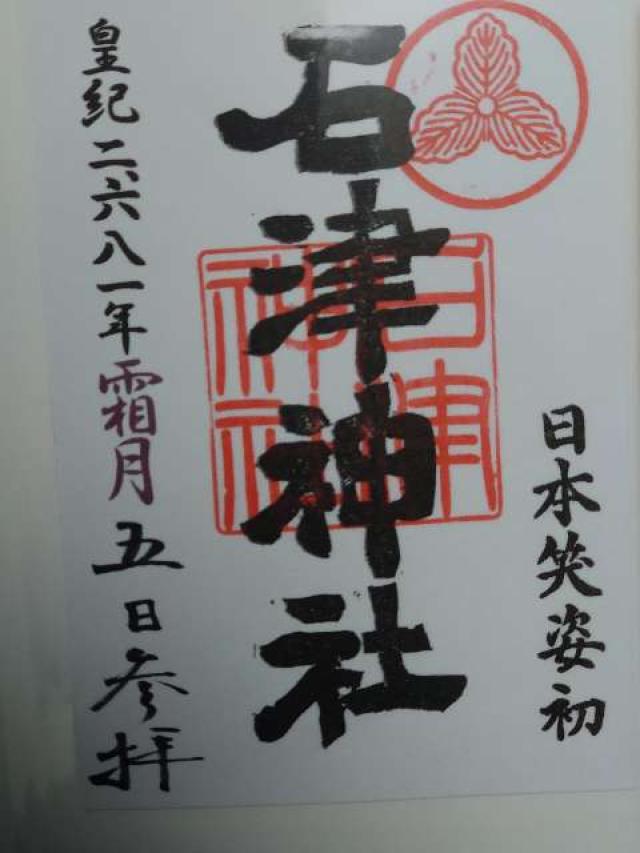 日本笑姿初
石津神社
石津
神社
皇紀二、六八一年霜月五日参拝